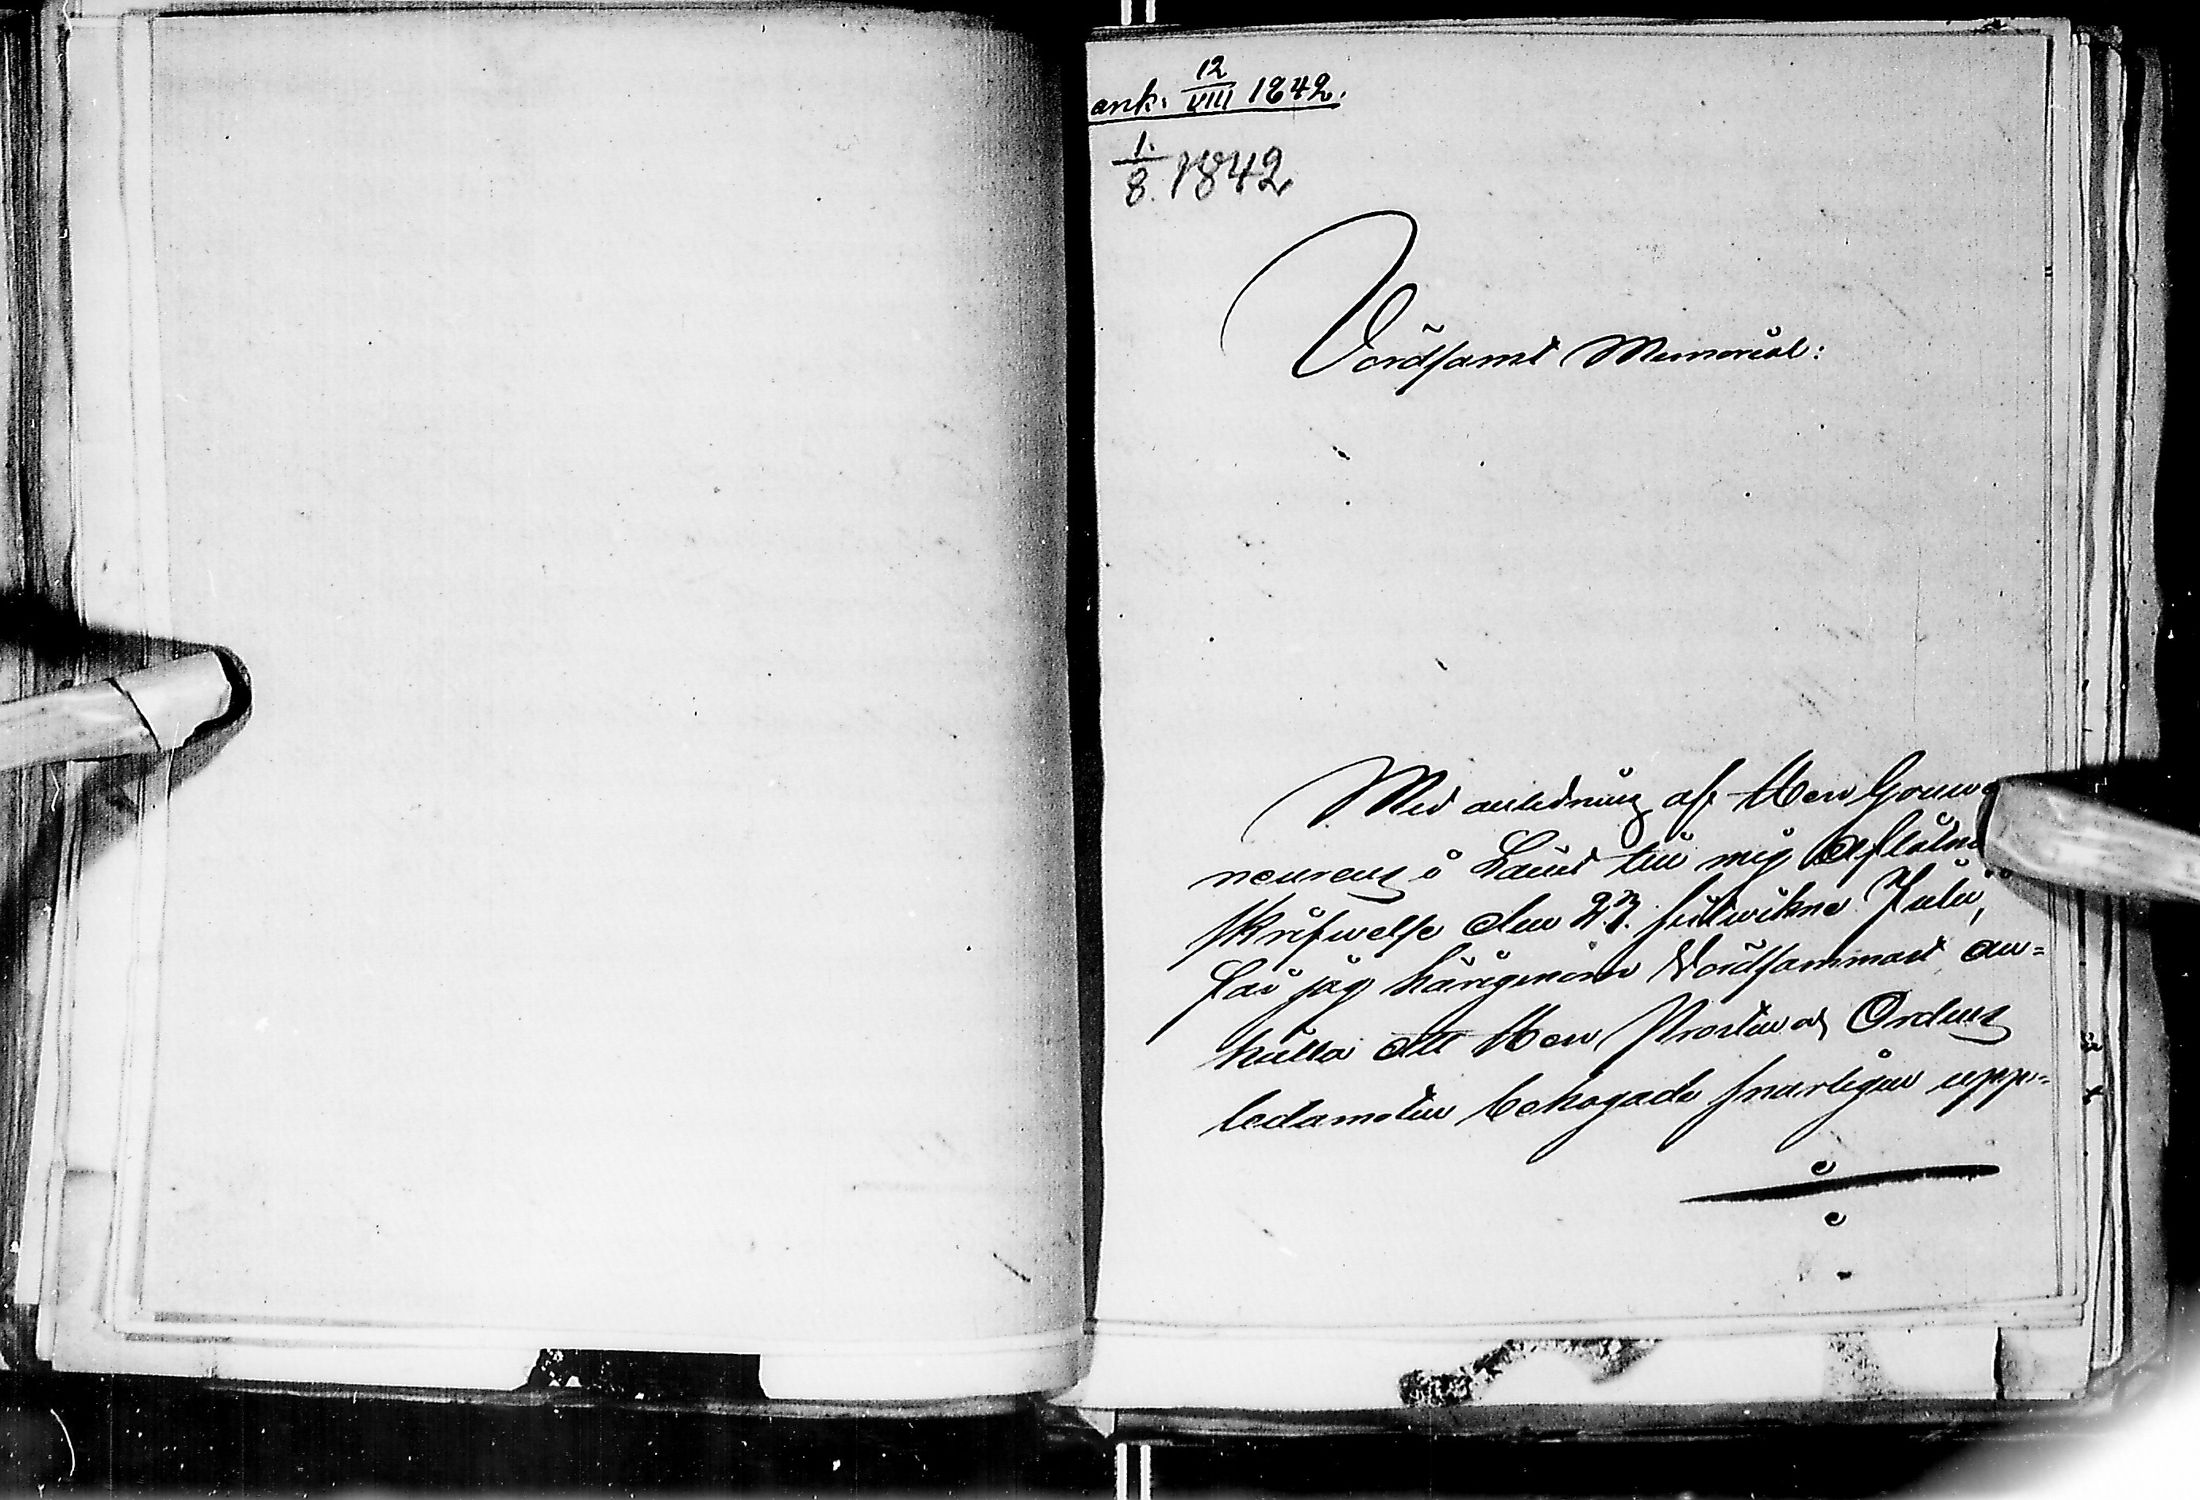 ank. 12/VIII 1842.
1./8. 1842
Vördsamt Memorial:
Med anledning af Herr Gouver
neurens i Länet till mig aflåtne
skrifwelse den 27. sistwikne Julii,
får jag härigenom Vördsammast an=
hålla att Herr Prosten och Ordens
ledamoten behagade snarligen upp=